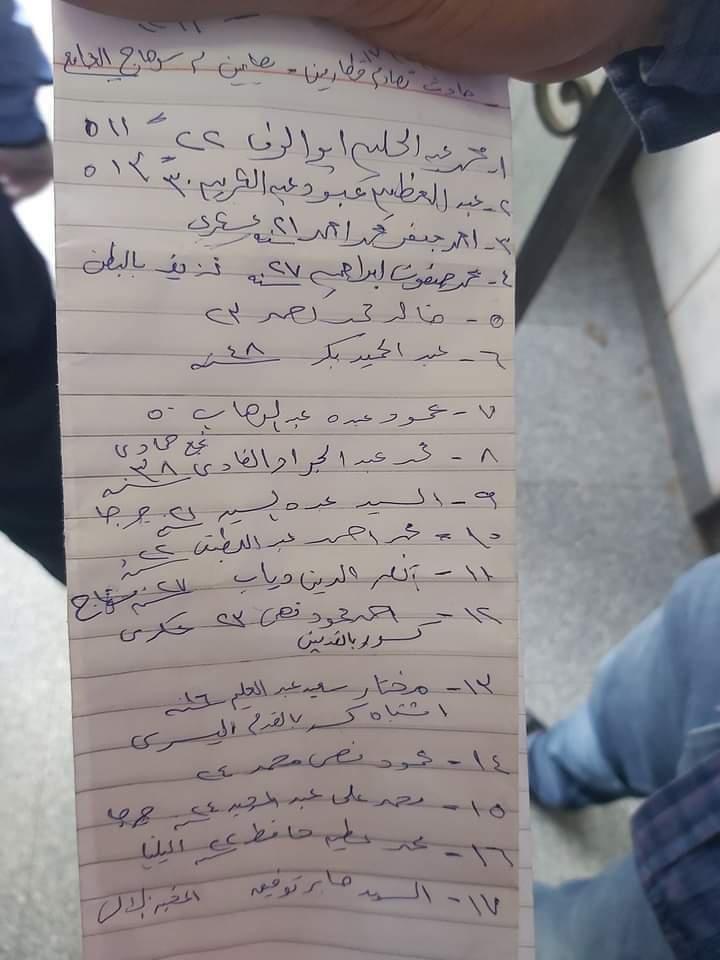 حادث تصادم قطارين - مصابين م سوهاج الجامعى
١- محمد عبد الحليم ابو الوفا ٢٢
٢- عبد العظيم عبود عبد الكريم ٣٠
٣- احمد جعفر محمد احمد ٢١ سنه
٤- محمد صفوت ابراهيم ٢٧ سنه نزيف بالبطن
٥- خالد محمد احمد ٢٣
٦- عبد الحميد بكر ٤٨ سنه
٧- محمود عبده عبد الوهاب ٥٠
نجع حمادى
٨- محمد عبد الجواد القاضى ٣٨ سنه
٩- السيد عبده السيد ٢١ سنه جرجا
١٠- محمد احمد عبد اللطيف ٢٢ سنه
١١- نصر الدين دياب ٢٧ سنه سوهاج
١٢- احمد محمود فهمى ٢٣
كسور بالقدمين
١٣- مختار سعيد عبد العليم ١٦ سنه
اشتباه كسر بالقدم اليسرى
١٤- محمود محمد ٢٤
١٥- محمد على عبد المجيد ٢٤ سنه جرجا
١٦- محمد حافظ ٢٢ سنه البلينا
١٧- السيد صابر توفيق